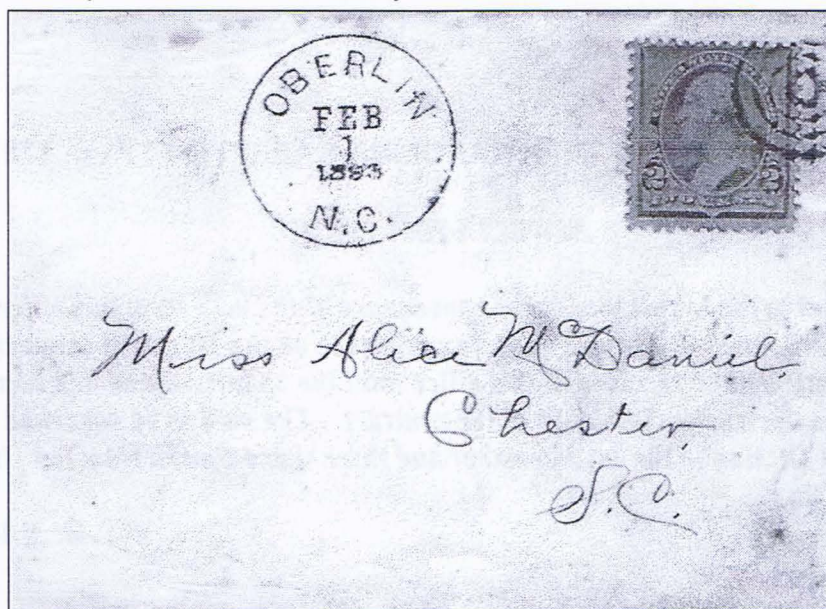 OBERLIN
FEB
1
1893
N.C.
Miss Alice McDaniel.
Chester,
S.C.